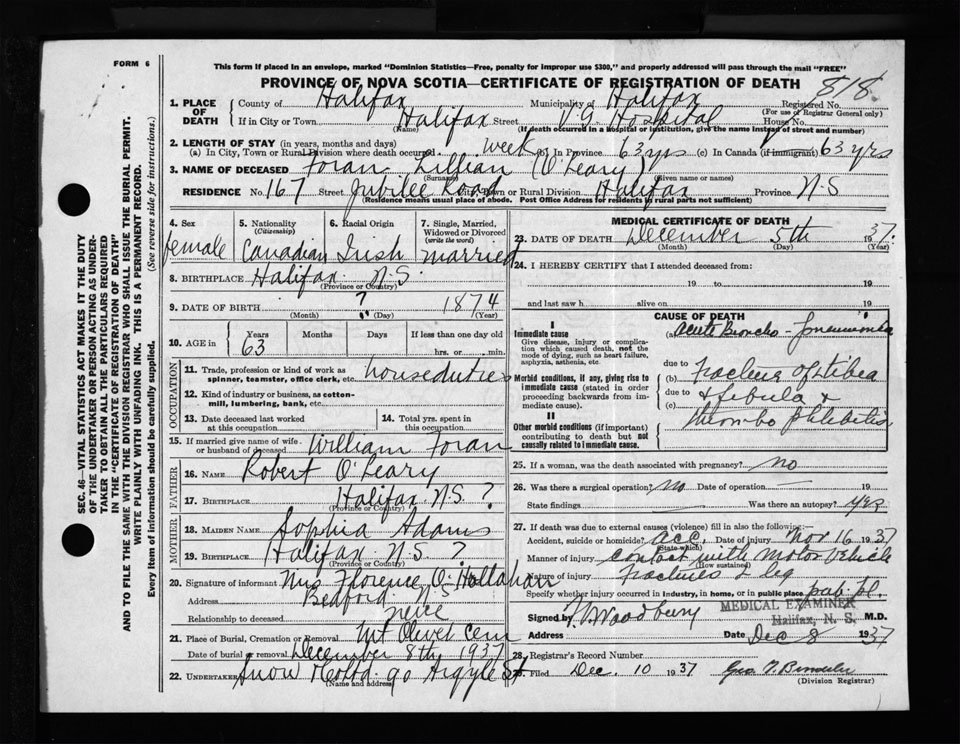 FORM 6
This form if placed in an envelope, marked "Dominion Statistics—Free, penalty for improper use $300," and properly addressed will pass through the mail "FREE"
PROVINCE OF NOVA SCOTIA—CERTIFICATE OF REGISTRATION OF DEATH
818
1. PLACE OF DEATH
County of Halifax Municipality of Halifax Registered No.
(For use of Registrar General only)
If in City or Town Halifax Street V.G. Hospital House No.
(Name) (If death occurred in a hospital or institution, give the name instead of street and number)
2. LENGTH OF STAY (in years, months and days)
(a) In City, Town or Rural Division where death occurred week (b) In Province 63 yrs (c) In Canada (if immigrant) 63 yrs
3. NAME OF DECEASED Foran Lillian (O'Leary)
(Surname) (Given name or names)
RESIDENCE No. 167 Street Jubilee Road City, Town or Rural Division Halifax Province N-S
(Residence means usual place of abode. Post Office Address for residents in rural parts not sufficient)
4. Sex female
5. Nationality (Citizenship) Canadian
6. Racial Origin Irish
7. Single, Married, Widowed or Divorced (write the word) married
8. BIRTHPLACE Halifax N.S.
(Province or Country)
9. DATE OF BIRTH ? " 1874
(Month) (Day) (Year)
10. AGE in Years 63 Months Days If less than one day old
hrs. or min.
OCCUPATION
11. Trade, profession or kind of work as spinner, teamster, office clerk, etc. houseduties
12. Kind of industry or business, as cotton-mill, lumbering, bank, etc.
13. Date deceased last worked at this occupation
14. Total yrs. spent in this occupation
15. If married give name of wife or husband of deceased William Foran
FATHER
16. NAME Robert O'Leary
17. BIRTHPLACE Halifax N.S. ?
(Province or Country)
MOTHER
18. MAIDEN NAME Sophia Adams
19. BIRTHPLACE Halifax N.S. ?
(Province or Country)
20. Signature of informant Mrs Florence O'Hallahan
Address Bedford N.S
Relationship to deceased niece
21. Place of Burial, Cremation or Removal Mt Olivet Cem
Date of burial or removal December 8th 1937
22. UNDERTAKER Snow 90 Argyle St
(Name and address)
MEDICAL CERTIFICATE OF DEATH
23. DATE OF DEATH December 5th 1937.
(Month) (Day) (Year)
24. I HEREBY CERTIFY that I attended deceased from:
19 to 19
and last saw h alive on 19
CAUSE OF DEATH
I
Immediate cause
Give disease, injury or complication which caused death, not the mode of dying, such as heart failure, asphyxia, asthenia, etc.
(a) Acute Broncho-pneumonia
due to
Morbid conditions, if any, giving rise to immediate cause (stated in order proceeding backwards from immediate cause).
(b) Fracture of tibea
due to & febula &
(c)
II
Other morbid conditions (if important) contributing to death but not causally related to immediate cause.
thrombo phlebitis
25. If a woman, was the death associated with pregnancy? no
26. Was there a surgical operation? No Date of operation — 19
State findings — Was there an autopsy? yes
27. If death was due to external causes (violence) fill in also the following:
Accident, suicide or homicide? acc. Date of injury Nov 16 1937
(State which)
Manner of injury contact with Motor Vehicle
(How sustained)
Nature of injury Fractures of leg
Specify whether injury occurred in industry, in home, or in public place pub. pl.
Signed by Woodbury M.D.
MEDICAL EXAMINER
Halifax, N. S.
Address Date Dec 8 1937
28. Registrar's Record Number
29. Filed Dec. 10 1937
(Division Registrar)
SEC. 46—VITAL STATISTICS ACT MAKES IT THE DUTY
OF THE UNDERTAKER OR PERSON ACTING AS UNDER-
TAKER TO OBTAIN ALL THE PARTICULARS REQUIRED
IN THE "CERTIFICATE OF REGISTRATION OF DEATH"
AND TO FILE THE SAME WITH THE DIVISION REGISTRAR WHO SHALL ISSUE THE BURIAL PERMIT.
WRITE PLAINLY WITH UNFADING INK. THIS IS A PERMANENT RECORD.
Every item of information should be carefully supplied. (See reverse side for instructions.)